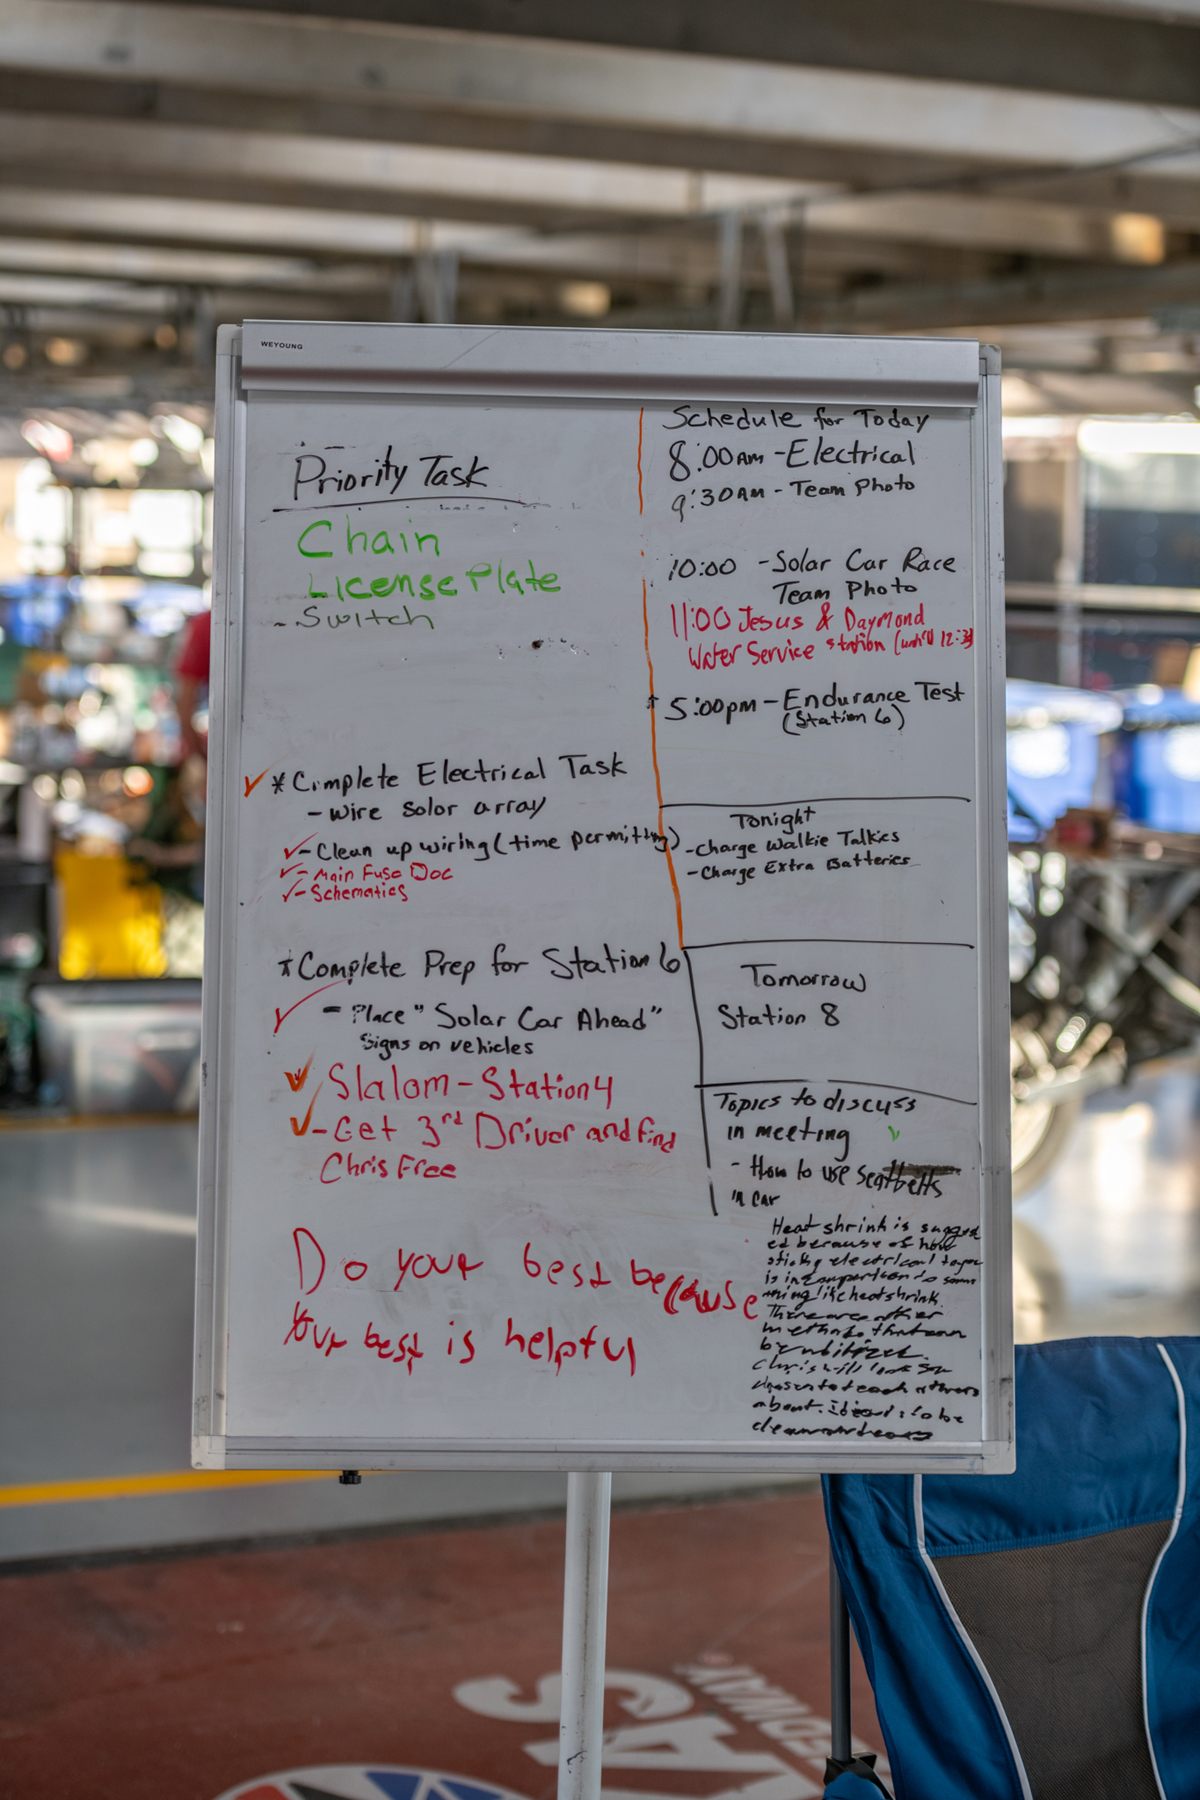 WEYOUNG
Priority Task
Chain
License Plate
- Switch
* Complete Electrical Task
- Wire solar array
- Clean up wiring (time permitting)
- Main Fuse Doc
- Schematics
* Complete Prep for Station 6
- Place "Solar Car Ahead"
Signs on vehicles
Slalom - Station 4
- Get 3rd Driver and find
Chris Free
Do your best because
Your best is helpful
Schedule for Today
8:00AM - Electrical
9:30AM - Team Photo
10:00 - Solar Car Race
Team Photo
11:00 Jesus & Daymond
Water Service station (until 12:3
5:00pm - Endurance Test
(Station 6)
Tonight
- Charge Walkie Talkies
- Charge Extra Batteries
Tomorrow
Station 8
Topics to discuss
in meeting
- How to use seatbelts
in car
Heat shrink is suggest
ed because of how
sticky electrical tape
is in comparison to some
thing like heat shrink.
There are other
methods that can
be utilized.
Chris will
to teach others
about.
to be